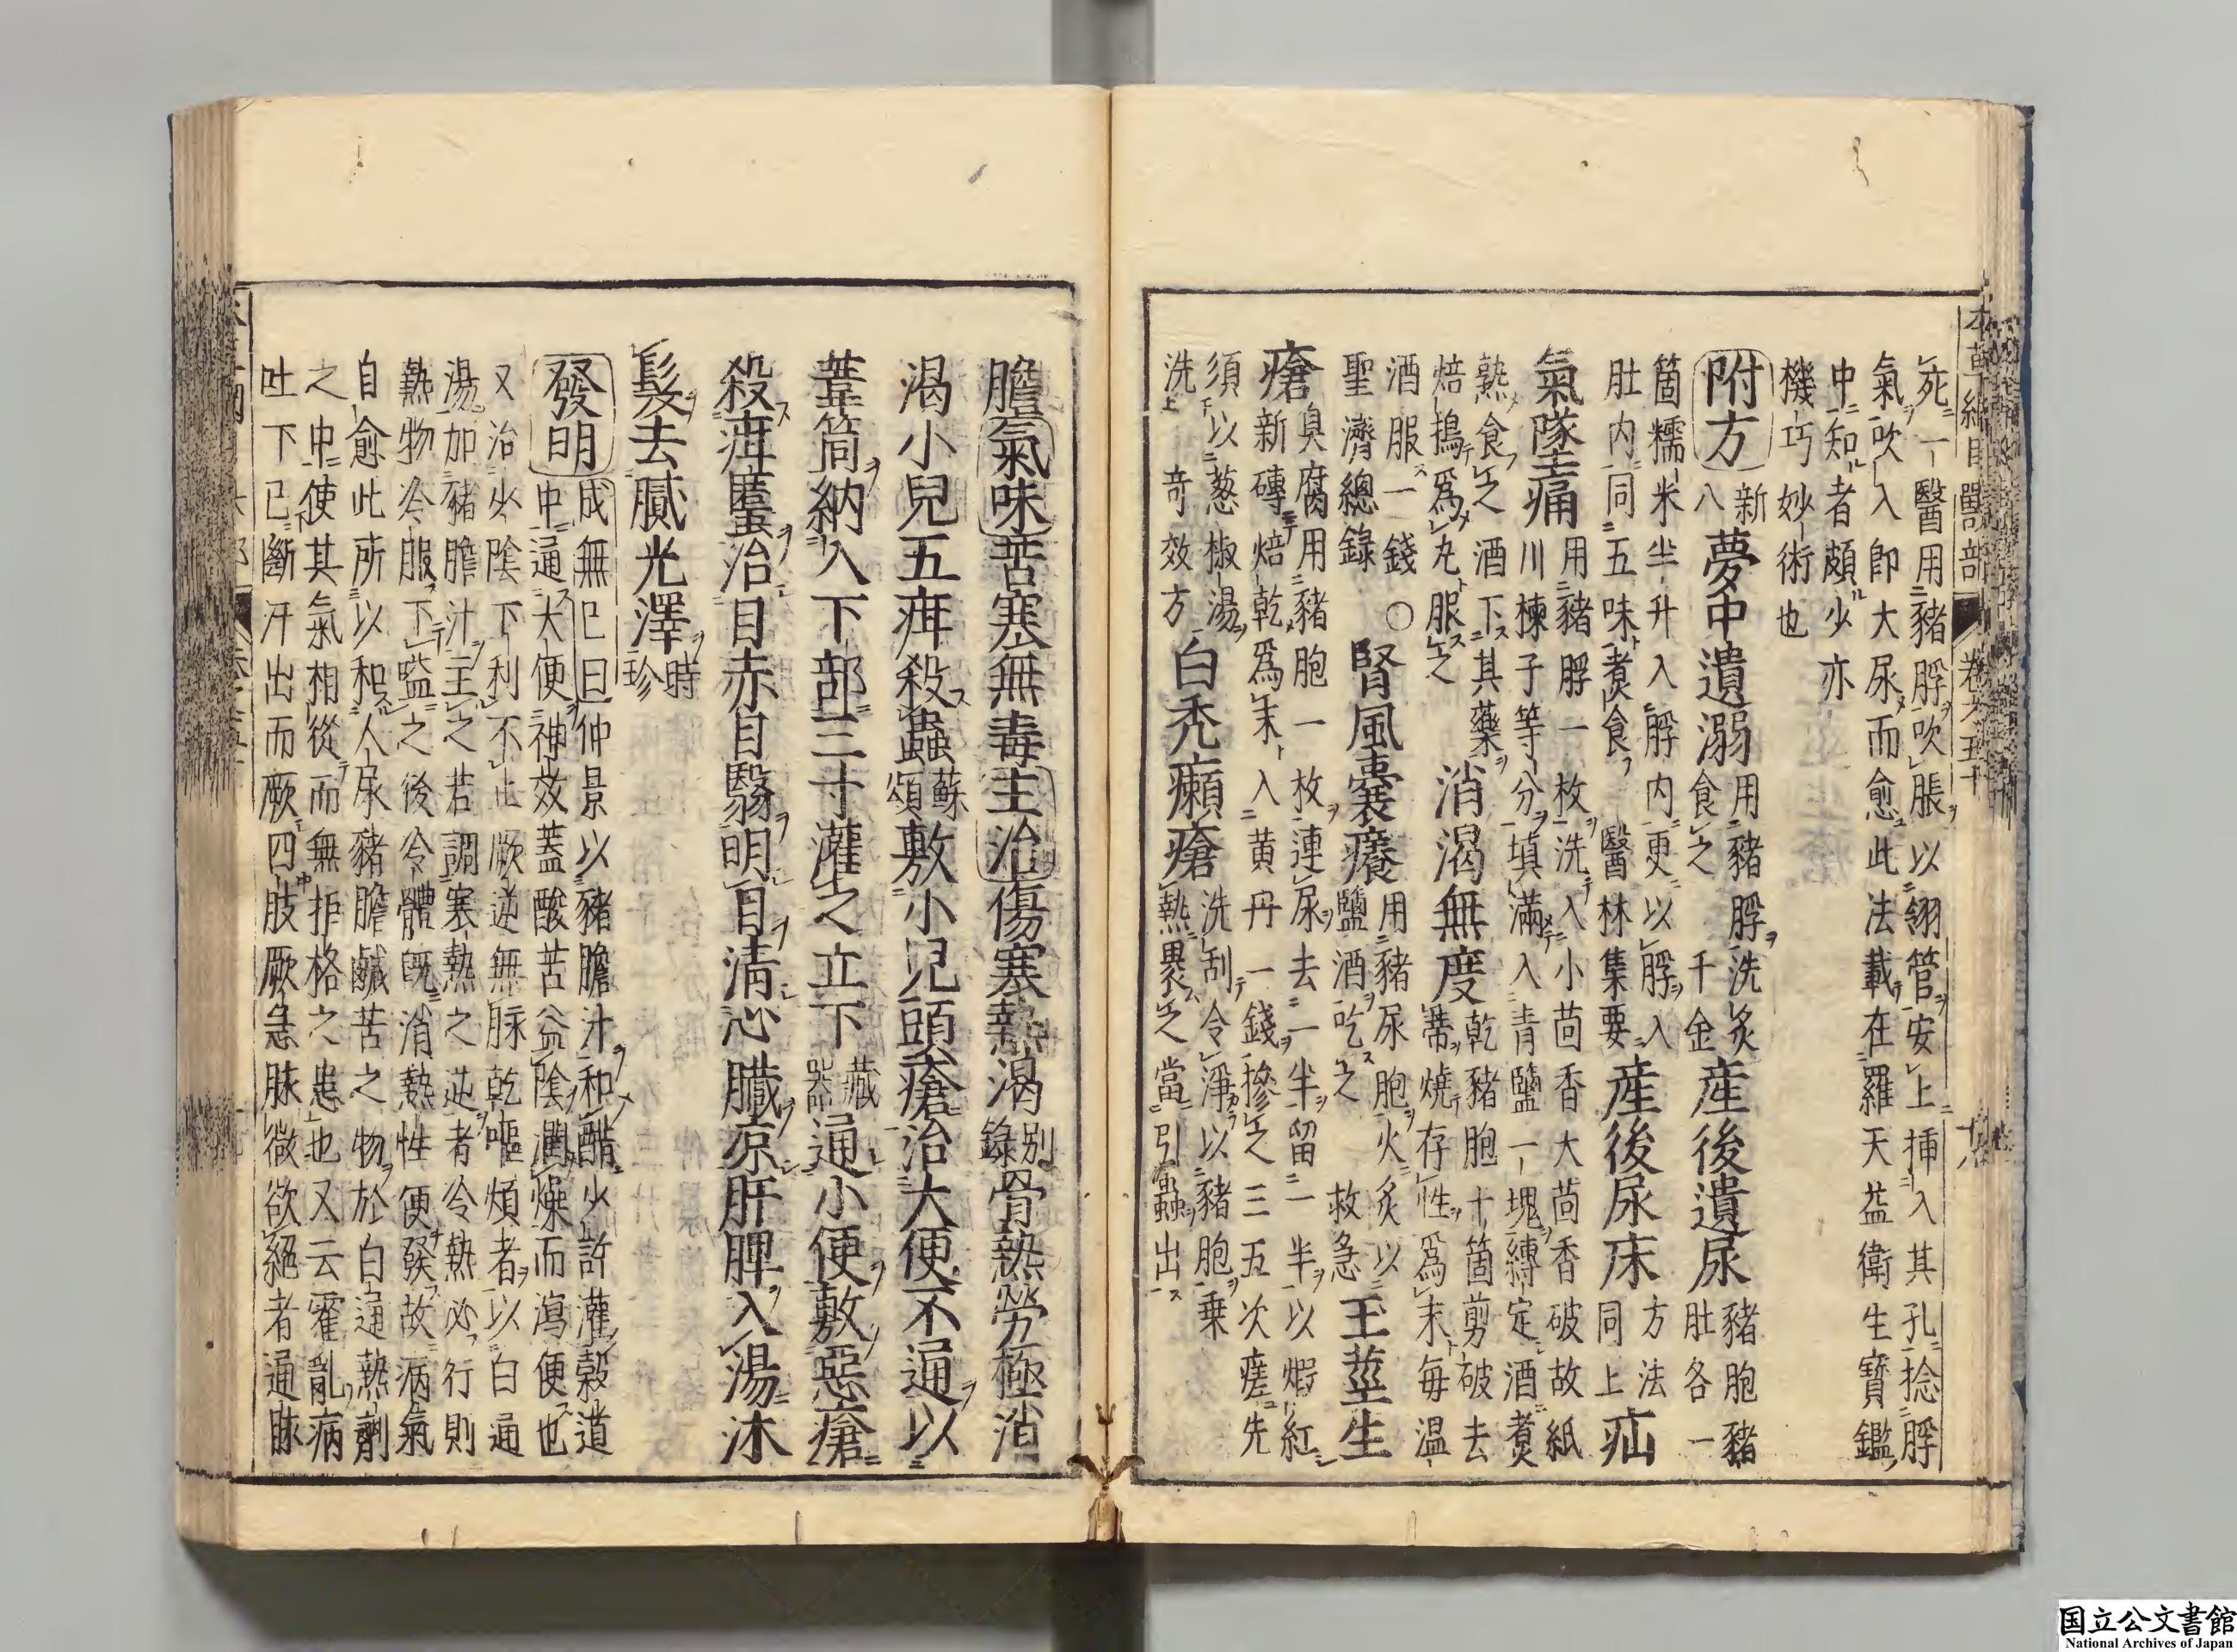 本草綱目獸部 卷之五十
死一醫用豬脬吹脹以翎管安上揷入其孔捻脬
氣吹入卽大尿而愈此法載在羅天益衛生寶鑑
中知者頗少亦
機巧妙術也
附方新八夢中遺溺用豬脬洗炙食之千金産後遺尿豬胞豬肚各一
箇糯米半升入脬内更以脬入
肚内同五味煑食醫林集要産後尿床方法同上疝
氣墜痛用豬脬一枚洗入小茴香大茴香破故紙
川楝子等分填滿入青鹽一塊縛定酒煑
熟食之酒下其藥
焙搗爲丸服之消渴無度乾豬胞十箇剪破去
蒂燒存性爲末每温
酒服一錢○
聖濟總錄腎風囊癢用豬尿胞火炙以鹽酒吃之救急玉莖生
瘡臭腐用豬胞一枚連尿去一半留一半以煆紅
新磚焙乾爲末入黄丹一錢摻之三五次瘥先
須以葱椒湯
洗上奇效方白禿癩瘡洗刮令淨以豬胞乗
熱裹之當引蟲出
膽氣味苦寒無毒主治傷寒熱渴别錄骨熱勞極消
渴小兒五疳殺蟲蘇頌敷小兒頭瘡治大便不通以
葦筒納入下部三寸灌之立下藏器通小便敷惡瘡
殺疳䘌治目赤目翳明目淸心臟凉肝脾入湯沐
髮去膩光澤時珍
發明成無已曰仲景以豬膽汁和醋少許灌穀道
中通大便神效蓋酸苦益隂潤燥而瀉便也
又治少隂下利不止厥逆無脉乾嘔煩者以白通
湯加豬膽汁主之若調寒熱之逆者冷熱必行則
熱物冷服下嗌之後冷體旣消熱性便發故病氣
自愈此所以和人尿豬膽鹹苦之物於白通熱劑
之中使其氣相從而無拒格之患也又云霍亂病
吐下已斷汗出而厥四肢厥急脉微欲絕者通脉
国立公文書館
National Archives of Japan